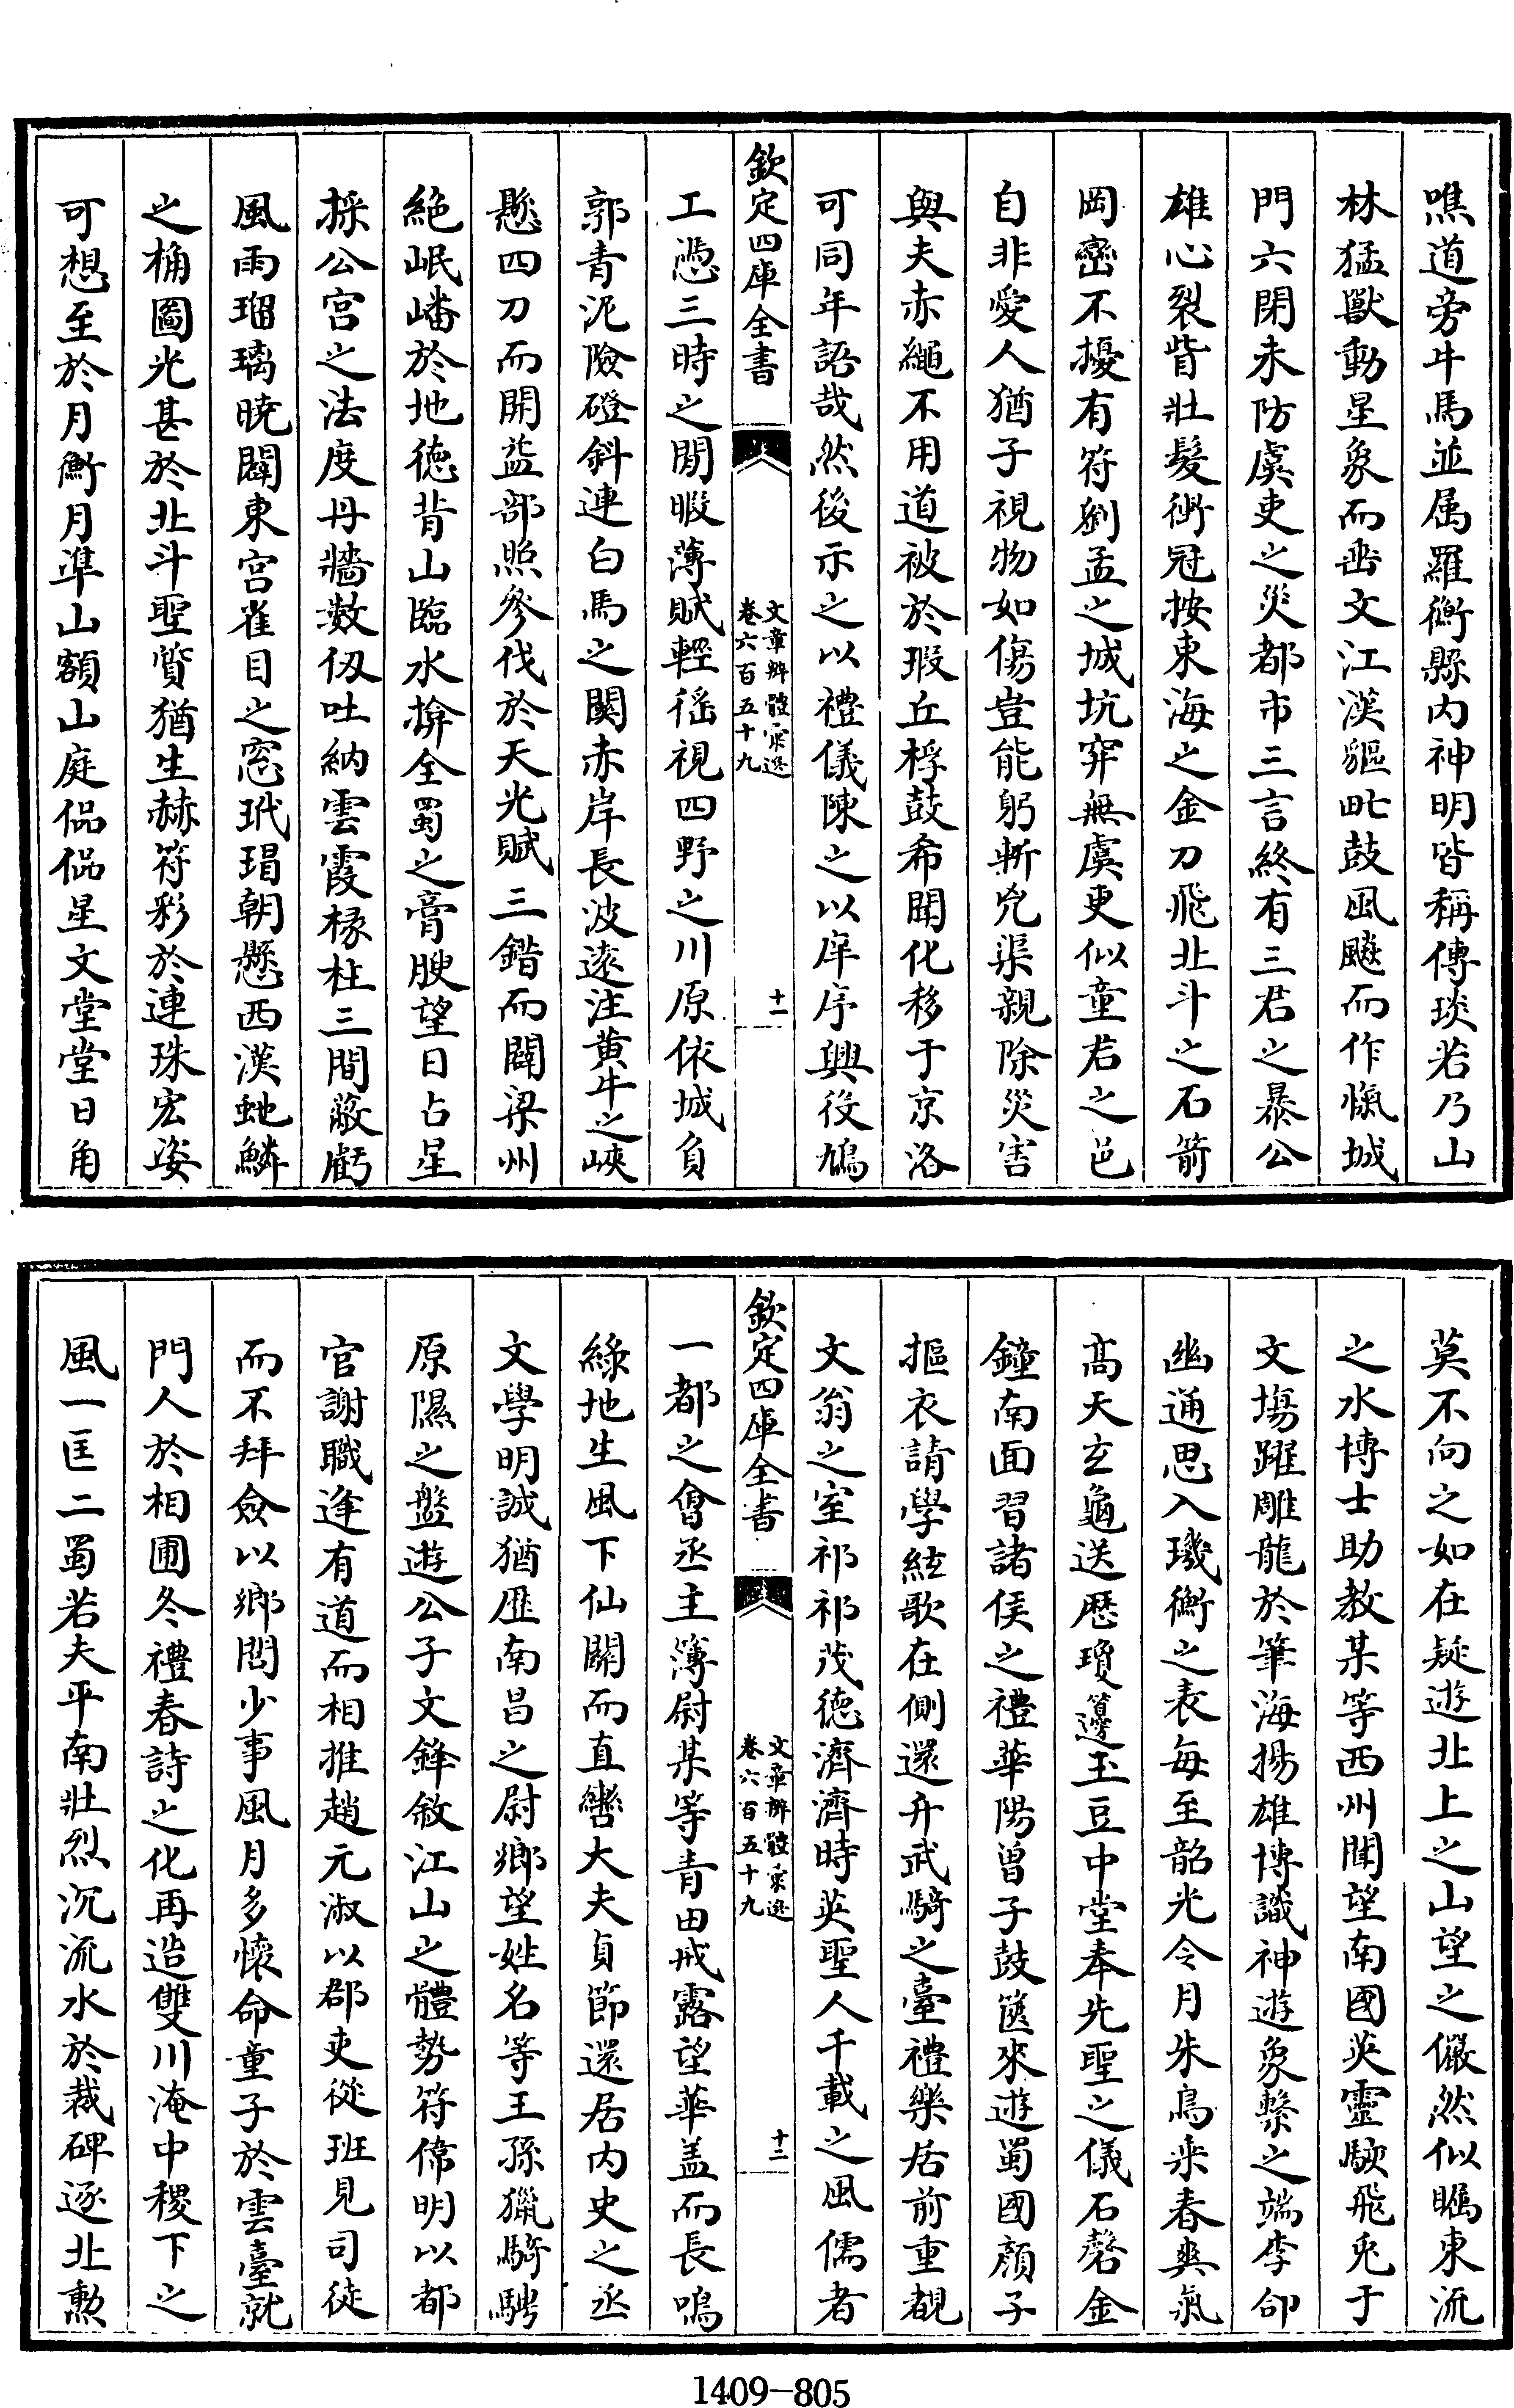 噍道旁牛馬並属羅衡縣内神明皆稱傳琰若乃山
林猛獸動星象而齒文江漢軀毗鼓風飈而作愾城
門六閉未防虞吏之災都市三言終有三君之暴公
雄心裂眥壯髮衝冠按東海之金刀飛北斗之石箭
岡巒不擾有符劉孟之城坑穽無虞更似童君之邑
自非愛人猶子視物如傷豈能躬斬兇渠親除災害
與夫赤繩不用道被於瑕丘桴鼓希聞化移于京洛
可同年語哉然後示之以禮儀陳之以庠序興役鳩
欽定四庫全書
文章辨體彙選
卷六百五十九
十一
工憑三時之閒暇薄賦輕徭視四野之川原依城負
郭青泥險磴斜連白馬之關赤岸長波遠注黄牛之峽
懸四刀而開益部照參伐於天光賦三錯而闢梁州
絶岷嶓於地徳背山臨水揜全蜀之膏腴望日占星
採公宫之法度丹牆數仭吐納雲霞椽柱三間蔽虧
風雨瑠璃曉闢東宫雀目之窓玳瑁朝懸西漢虵鱗
之桷圖光甚於北斗聖質猶生赫符彩於連珠宏姿
可想至於月衡月準山額山庭偘偘星文堂堂日角
莫不向之如在疑遊北上之山望之儼然似矚東流
之水博士助教某等西州聞望南國英靈駃飛兎于
文塲躍雕龍於筆海揚雄博識神遊象繫之端李郃
幽通思入璣衡之表每至韶光令月朱鳥乗春爽氣
髙天玄龜送厯瓊籩玉豆中堂奉先聖之儀石磬金
鐘南面習諸侯之禮華陽曽子鼓篋來遊蜀國顔子
摳衣請學絃歌在側還升武騎之臺禮樂居前重覩
文翁之室祁祁茂徳濟濟時英聖人千載之風儒者
欽定四庫全書
文章辨體彙選
卷六百五十九
十二
一都之會丞主簿尉某等青田戒露望華盖而長鳴
綠地生風下仙闗而直轡大夫貞節還居内史之丞
文學明誠猶歴南昌之尉鄉望姓名等王孫獵騎騁
原隰之盤遊公子文鋒敘江山之體勢符偉明以都
官謝職逢有道而相推趙元淑以郡吏從班見司徒
而不拜僉以鄉閭少事風月多懷命童子於雲臺就
門人於相圃冬禮春詩之化再造雙川淹中稷下之
風一匡二蜀若夫平南壯烈沉流水於裁碑逐北勲
1409-805